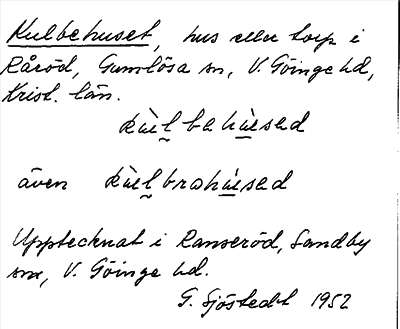 Kulbehuset, hus eller torp i
Råröd, Gumlösa sn, V. Göinge hd,
Krist. län.
kùl̰bahùsad
även kùl̰brahùsad
Upptecknat i Ranseröd, Sandby
sn, V. Göinge hd.
G. Sjöstedt 1952